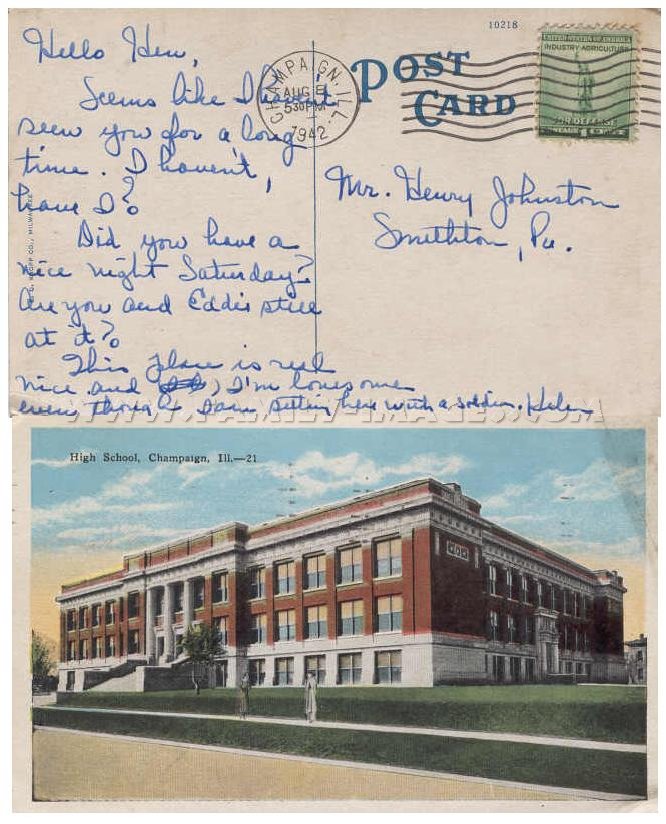 10218
Hello Hen,
Seems like I haven't
seen you for a long
time. I haven't,
have I?
Did you have a
nice night Saturday?
Are you and Eddie still
at it?
This place is real
nice and I'm lonesome
even though I am sitting here with a soldier. Helen
CHAMPAIGN, ILL.
AUG
5 30 PM
1942
POST
CARD
UNITED STATES OF AMERICA
INDUSTRY AGRICULTURE
FOR DEFENSE
1
Mr. Henry Johnston
Smithton, Pa.
CO., MILWAUKEE
WWW.FAMILY-IMAGES.COM
High School, Champaign, Ill.—21